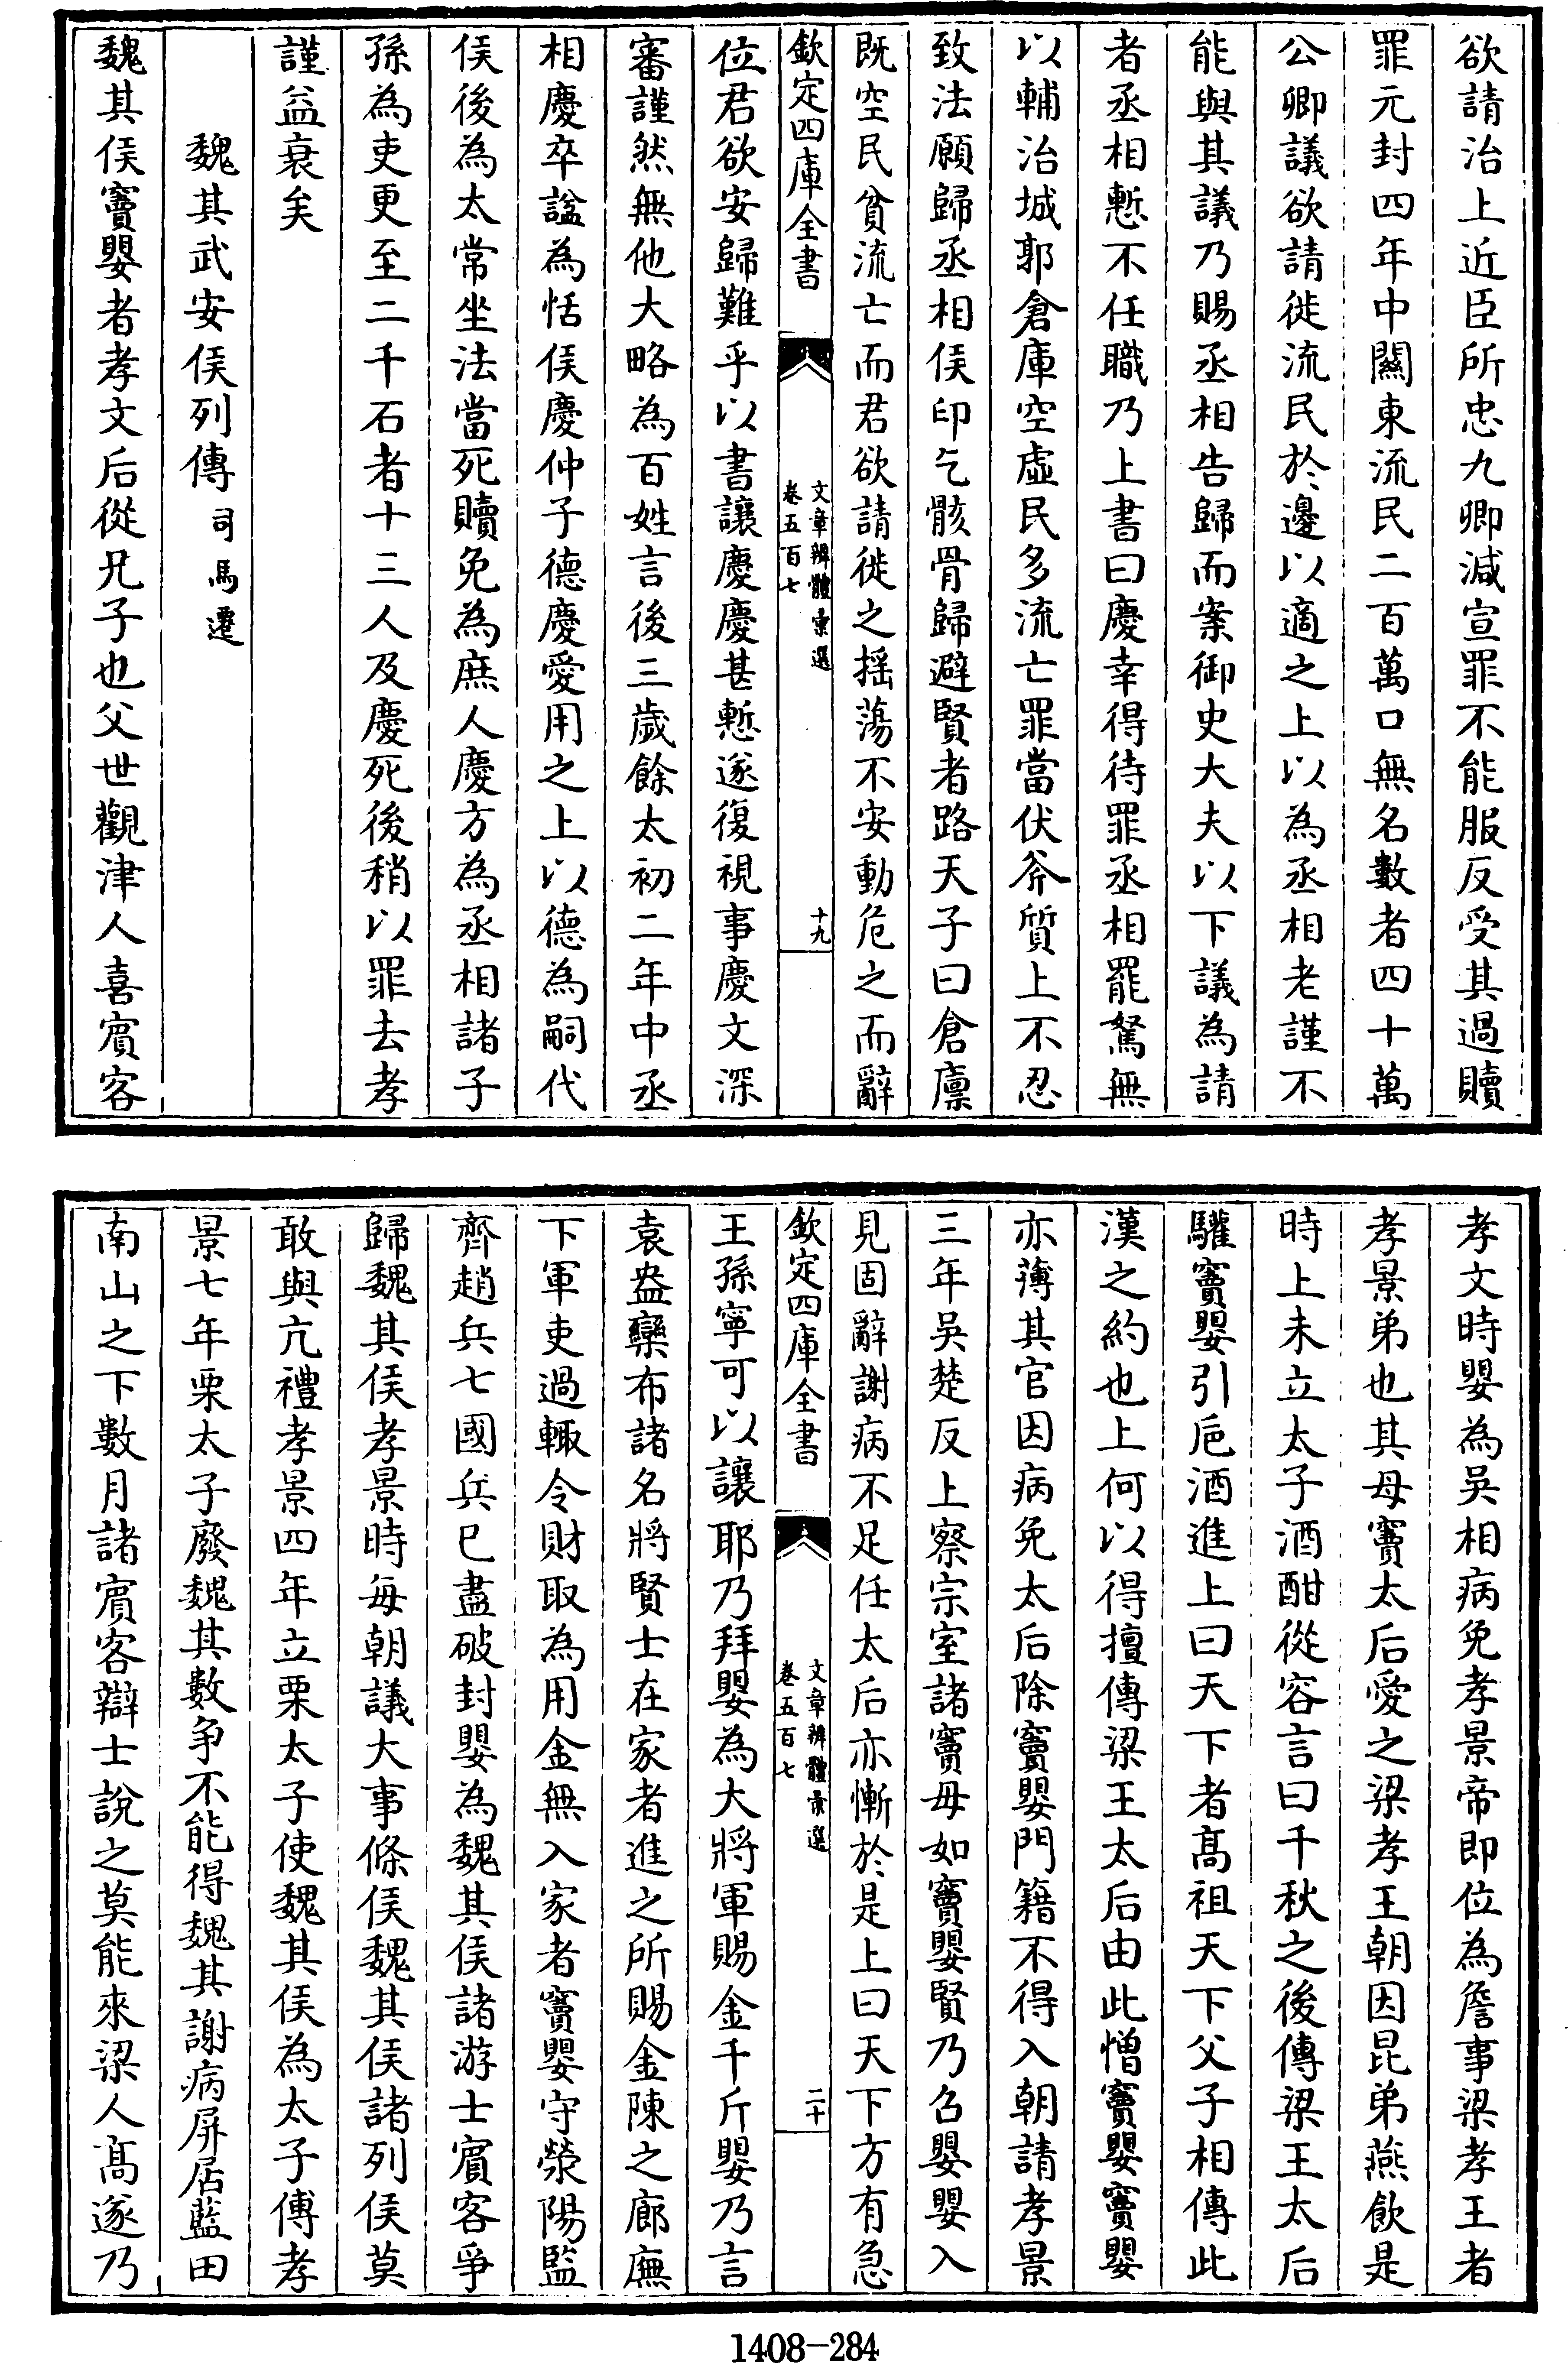 欲請治上近臣所忠九卿減宣罪不能服反受其過贖
罪元封四年中關東流民二百萬口無名數者四十萬
公卿議欲請徙流民於邊以適之上以為丞相老謹不
能與其議乃賜丞相告歸而案御史大夫以下議為請
者丞相慙不任職乃上書曰慶幸得待罪丞相罷駑無
以輔治城郭倉庫空虛民多流亡罪當伏斧質上不忍
致法願歸丞相侯印乞骸骨歸避賢者路天子曰倉廩
既空民貧流亡而君欲請徙之揺蕩不安動危之而辭
欽定四庫全書
文章辨體彚選
卷五百七
十九
位君欲安歸難乎以書讓慶慶甚慙遂復視事慶文深
審謹然無他大略為百姓言後三歲餘太初二年中丞
相慶卒諡為恬侯慶仲子德慶愛用之上以德為嗣代
侯後為太常坐法當死贖免為庶人慶方為丞相諸子
孫為吏更至二千石者十三人及慶死後稍以罪去孝
謹益衰矣
魏其武安侯列傳司馬遷
魏其侯竇嬰者孝文后從兄子也父世觀津人喜賓客
孝文時嬰為吳相病免孝景帝即位為詹事梁孝王者
孝景弟也其母竇太后愛之梁孝王朝因昆弟燕飲是
時上未立太子酒酣從容言曰千秋之後傳梁王太后
驩竇嬰引巵酒進上曰天下者髙祖天下父子相傳此
漢之約也上何以得擅傳梁王太后由此憎竇嬰竇嬰
亦薄其官因病免太后除竇嬰門籍不得入朝請孝景
三年吳楚反上察宗室諸竇毋如竇嬰賢乃召嬰嬰入
見固辭謝病不足任太后亦慚於是上曰天下方有急
欽定四庫全書
文章辨體彚選
卷五百七
二十
王孫寧可以讓耶乃拜嬰為大將軍賜金千斤嬰乃言
袁盎欒布諸名將賢士在家者進之所賜金陳之廊廡
下軍吏過輒令財取為用金無入家者竇嬰守滎陽監
齊趙兵七國兵已盡破封嬰為魏其侯諸游士賓客爭
歸魏其侯孝景時每朝議大事條侯魏其侯諸列侯莫
敢與亢禮孝景四年立栗太子使魏其侯為太子傅孝
景七年栗太子廢魏其數争不能得魏其謝病屏居藍田
南山之下數月諸賓客辯士說之莫能來梁人髙遂乃
1408-284